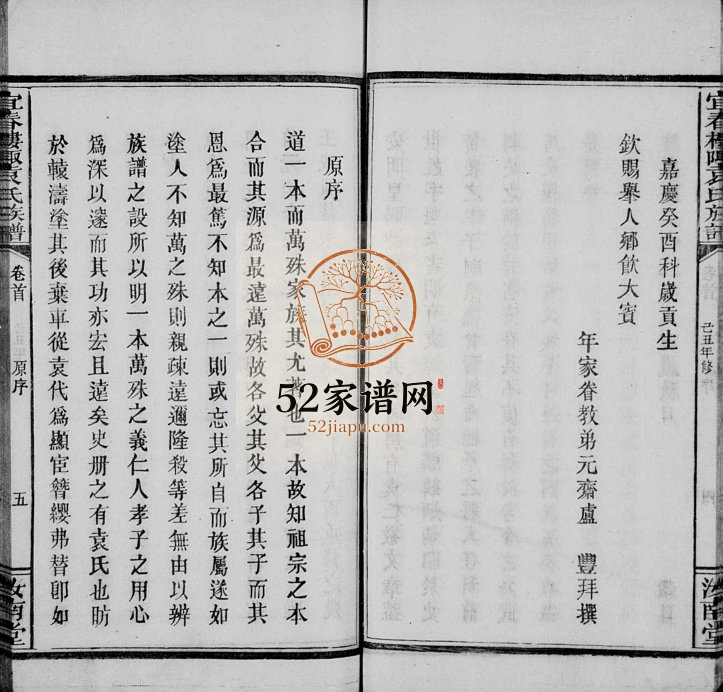 宜春樓陬袁氏族譜
嘉慶癸酉科歲貢生
欽賜舉人鄉飲大賓
年家眷教弟元齋盧　豐拜撰
己丑年修
四
汝南堂
原序
道一本而萬殊家族其尤著也一本故知祖宗之本
合而其源為最遠萬殊故各父其父各子其子而其
恩為最篤不知本之一則或忘其所自而族屬遂如
塗人不知萬之殊則親疎遠邇隆殺等差無由以辨
族譜之設所以明一本萬殊之義仁人孝子之用心
為深以遠而其功亦宏且遠矣史册之有袁氏也昉
於轅濤塗其後棄車從袁代為顯宦簪纓弗替卽如
宜春樓陬袁氏族譜
卷首
原序
五
汝南堂
52家谱网
52jiapu.com